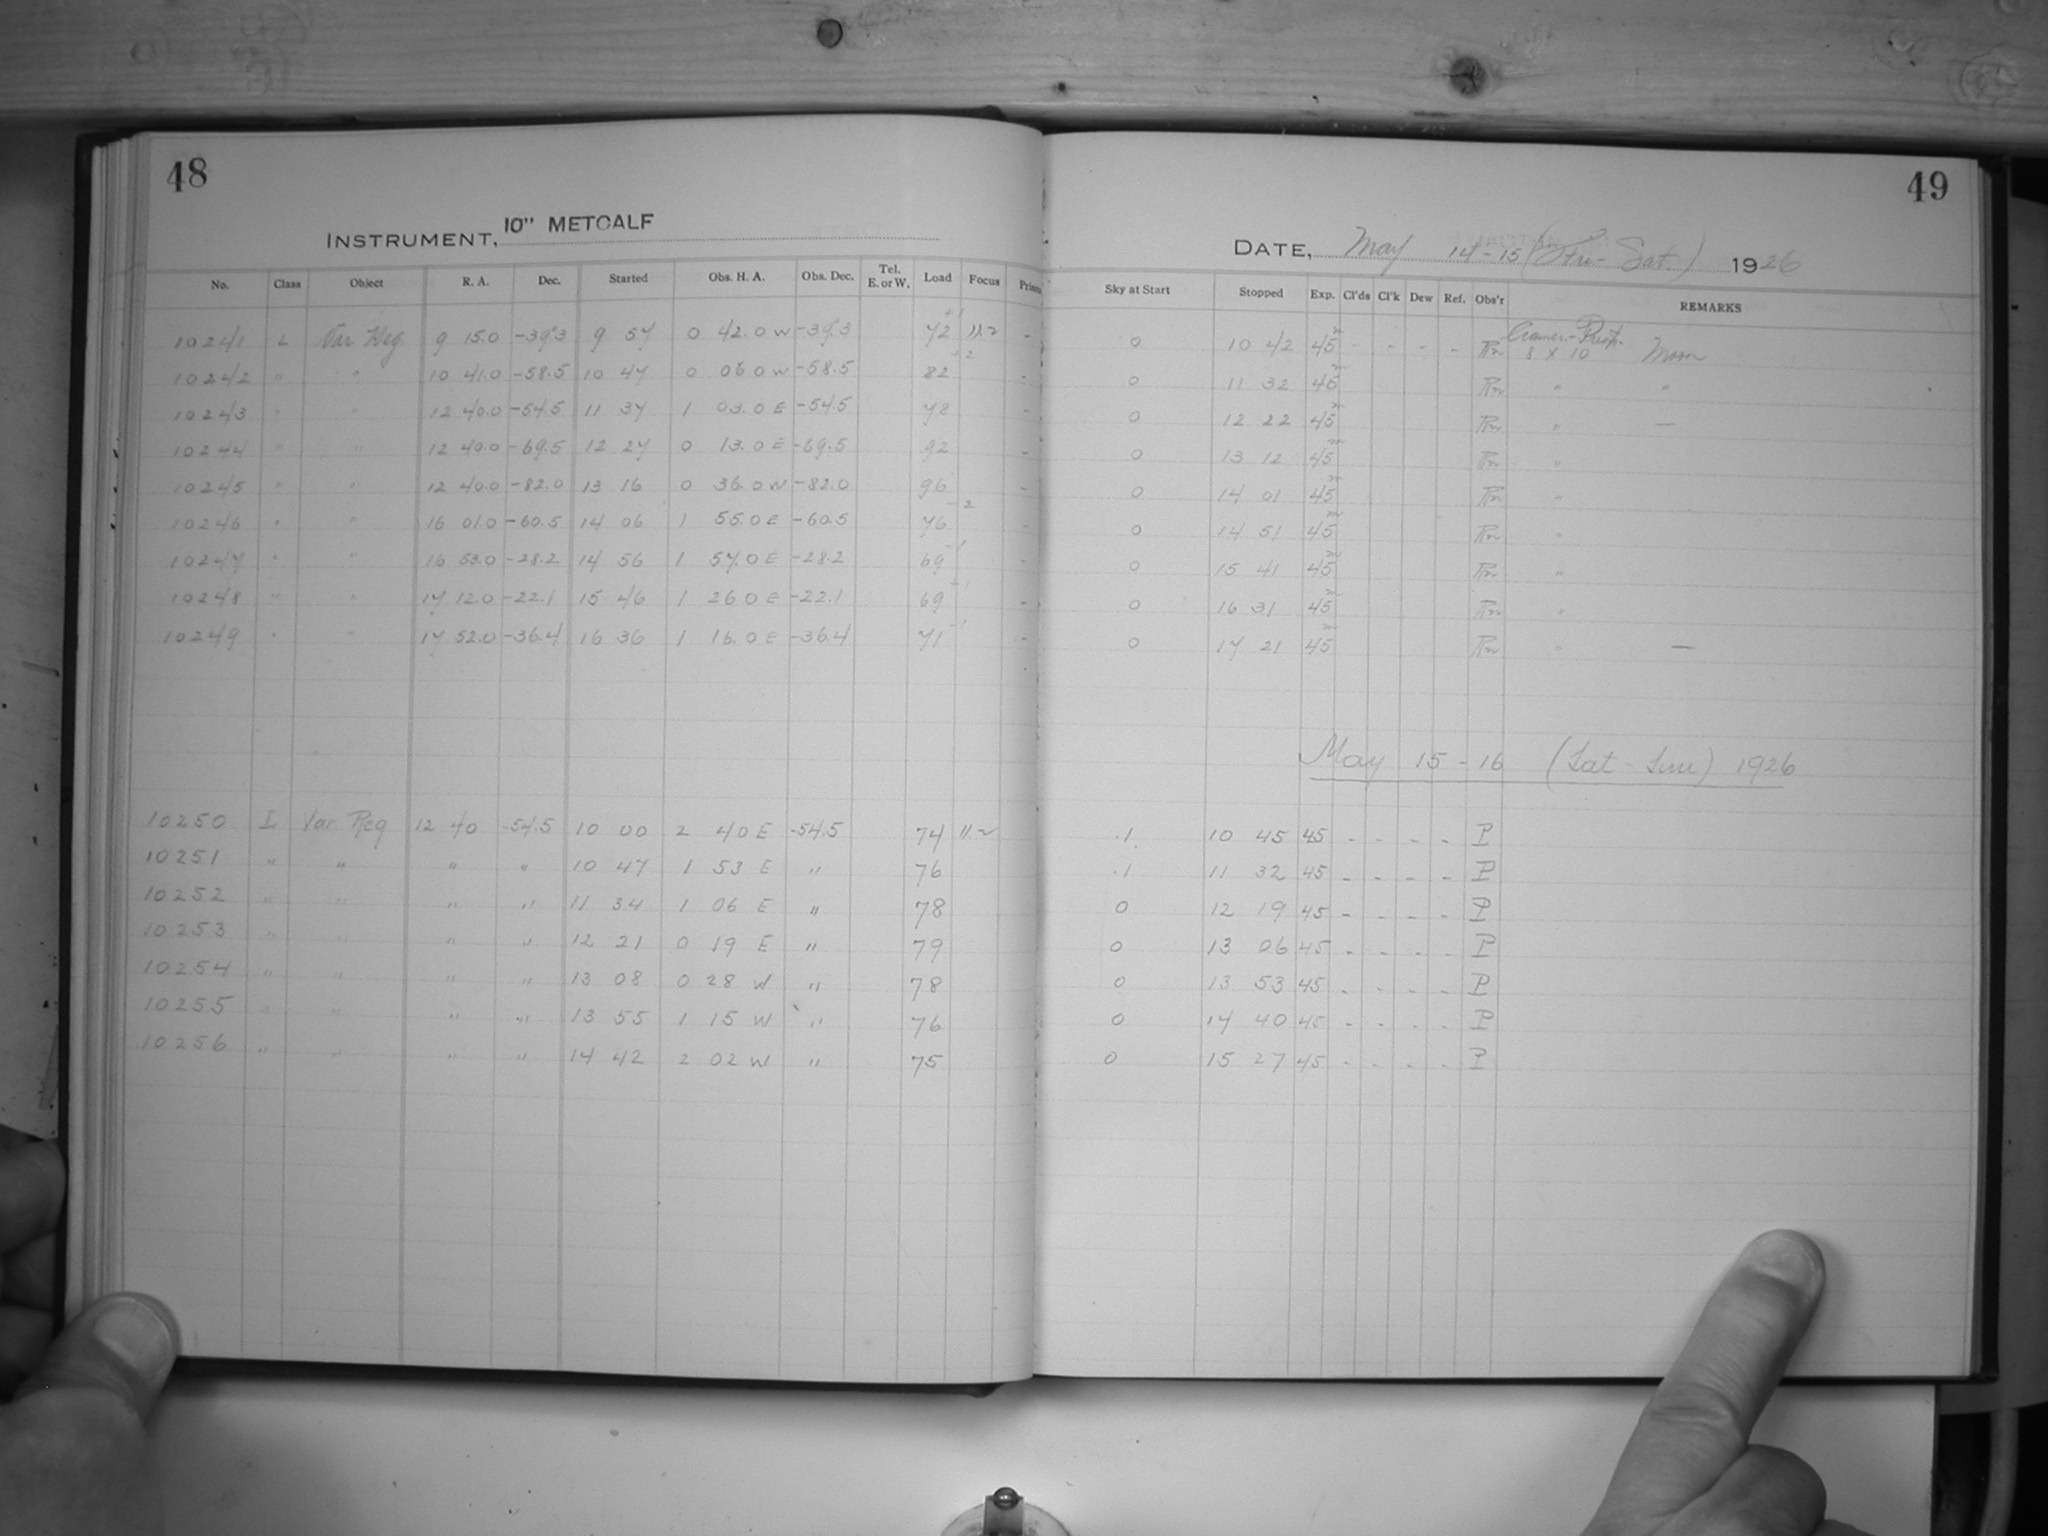 48
INSTRUMENT, 10" METCALF
No. Class Object R. A. Dec. Started Obs. H. A. Obs. Dec. Tel. E. or W. Load Focus Prism
10241 L Var Reg 9 15.0 -39°.3 9 57 0 42.0 W -39°.3 72 +1 11.2 -
10242 " " 10 41.0 -58.5 10 47 0 06.0 W -58.5 82 +2 -
10243 " " 12 40.0 -54.5 11 37 1 03.0 E -54.5 78 -
10244 " " 12 40.0 -69.5 12 27 0 13.0 E -69.5 92 -
10245 " " 12 40.0 -82.0 13 16 0 36.0 W -82.0 96 -
10246 " " 16 01.0 -60.5 14 06 1 55.0 E -60.5 76 -2 -
10247 " " 16 53.0 -28.2 14 56 1 57.0 E -28.2 69 -1 -
10248 " " 17 12.0 -22.1 15 46 1 26.0 E -22.1 69 +1 -
10249 " " 17 52.0 -36.4 16 36 1 16.0 E -36.4 71 -1 -
10250 L Var Reg 12 40 -54.5 10 00 2 40 E -54.5 74 11.2
10251 " " " " 10 47 1 53 E " 76
10252 " " " " 11 34 1 06 E " 78
10253 " " " " 12 21 0 19 E " 79
10254 " " " " 13 08 0 28 W " 78
10255 " " " " 13 55 1 15 W " 76
10256 " " " " 14 42 2 02 W " 75
49
DATE, May 14-15 (Fri-Sat.) 1926
Sky at Start Stopped Exp. Cl'ds Cl'k Dew Ref. Obs'r REMARKS
0 10 42 45m - - - - Rw Cramer- 8 x 10 Moon
0 11 32 45m Rw " "
0 12 22 45m Rw " —
0 13 12 45m Rw "
0 14 01 45m Rw "
0 14 51 45m Rw "
0 15 41 45m Rw "
0 16 31 45m Rw "
0 17 21 45m Rw " —
May 15-16 (Sat-Sun) 1926
.1 10 45 45 - - - - P
.1 11 32 45 - - - - P
0 12 19 45 - - - - P
0 13 06 45 - - - - P
0 13 53 45 - - - - P
0 14 40 45 - - - - P
0 15 27 45 - - - - P